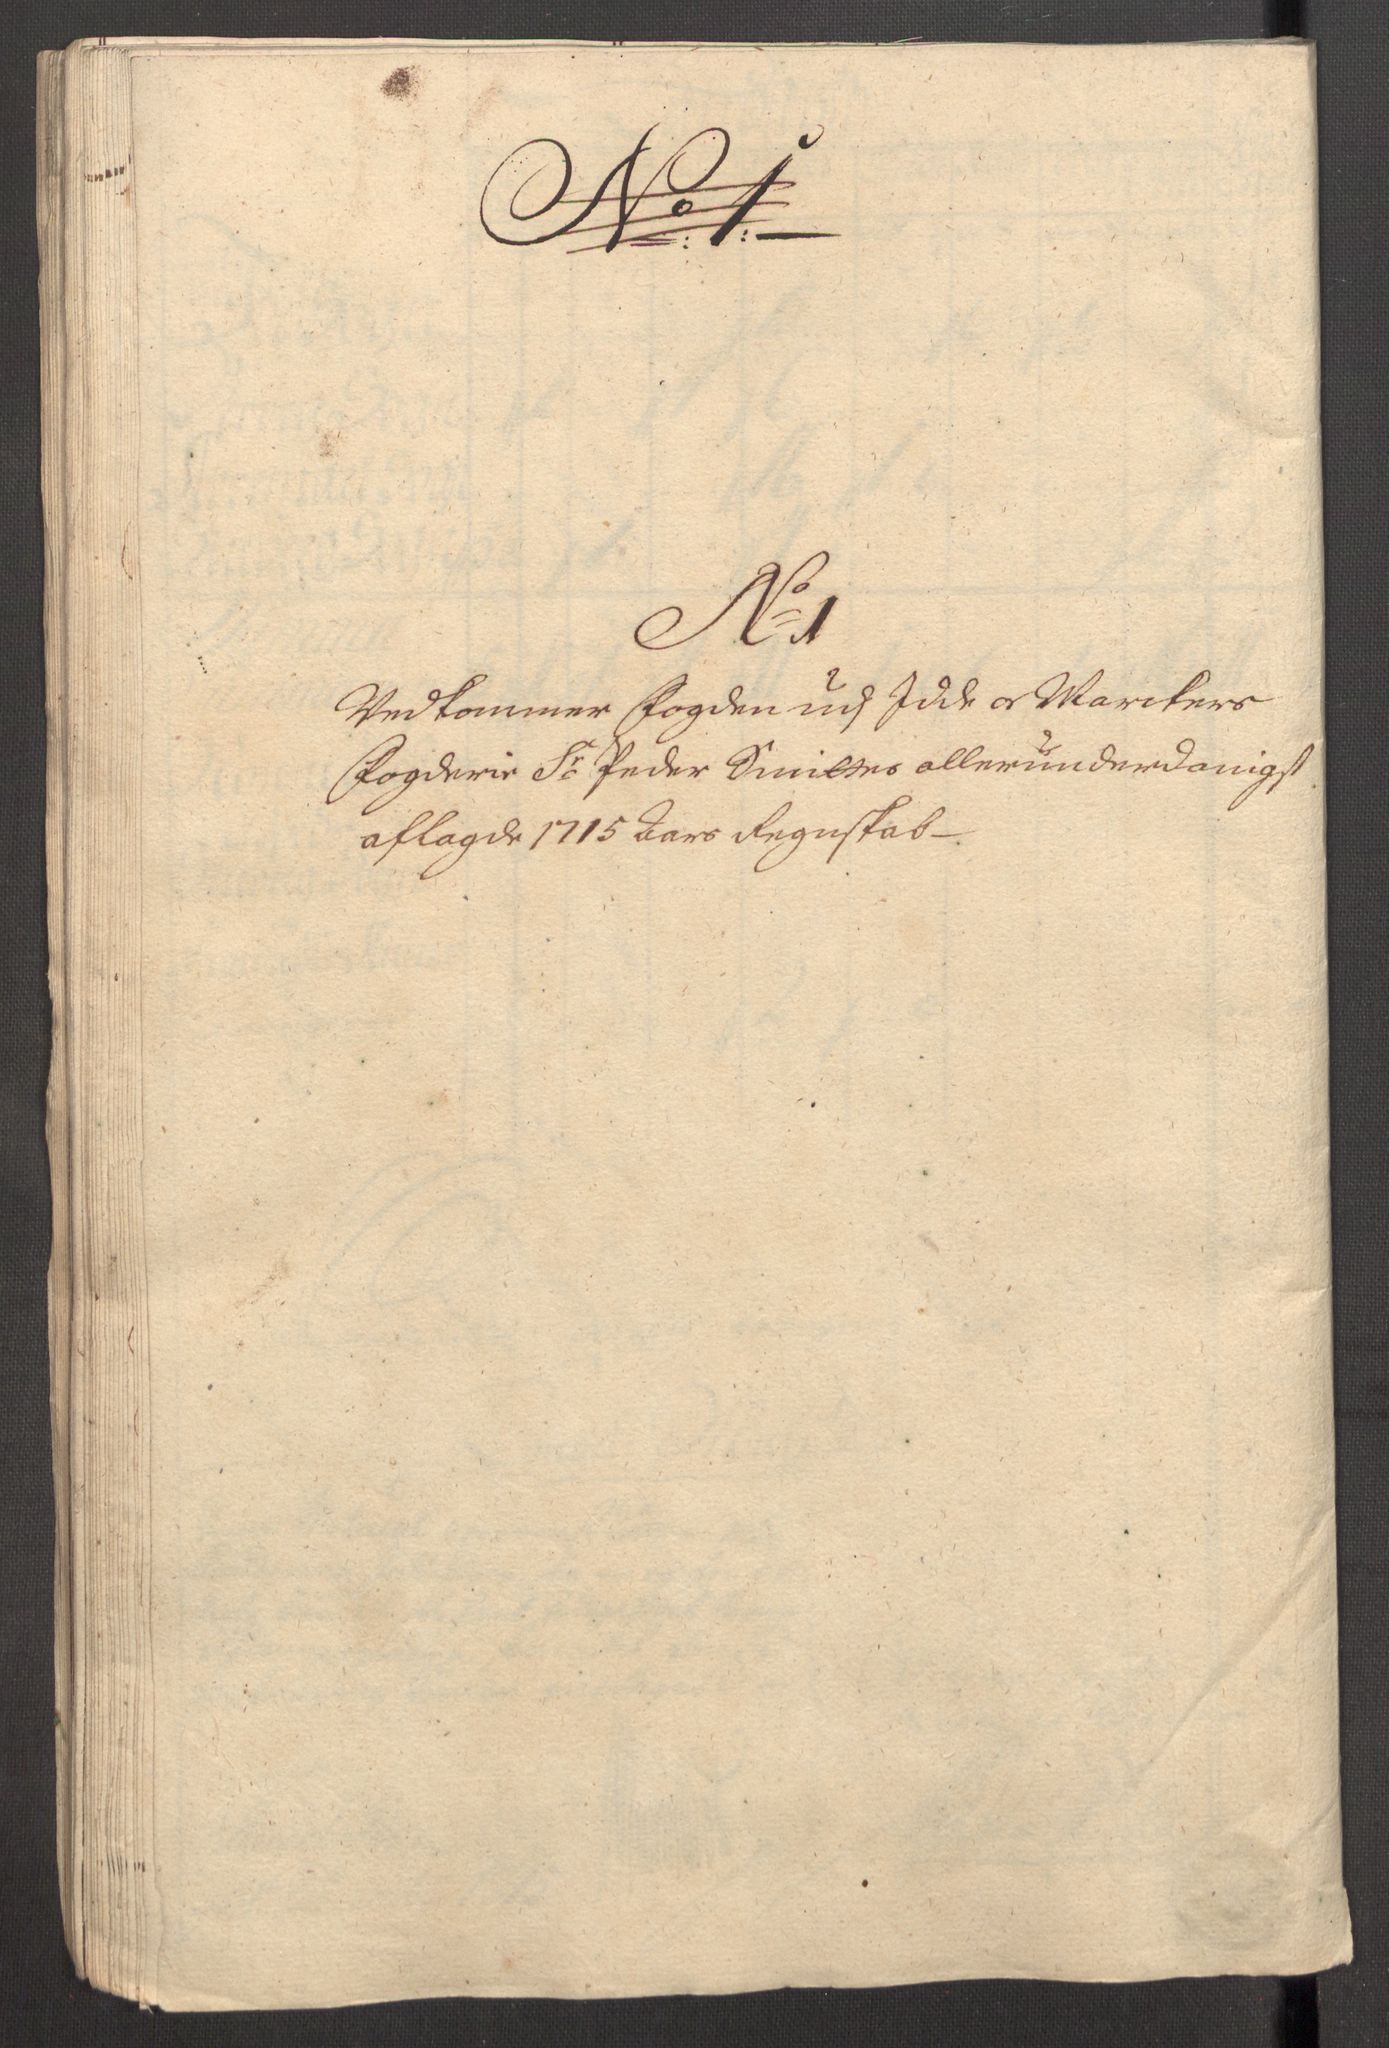 No: 1:
No 1
Vedkommer Fogden udj Idde oc Marckers
Fogderie Sr Peder Smittes allerunderdanigst
aflagde 1715 Aars Regnskab